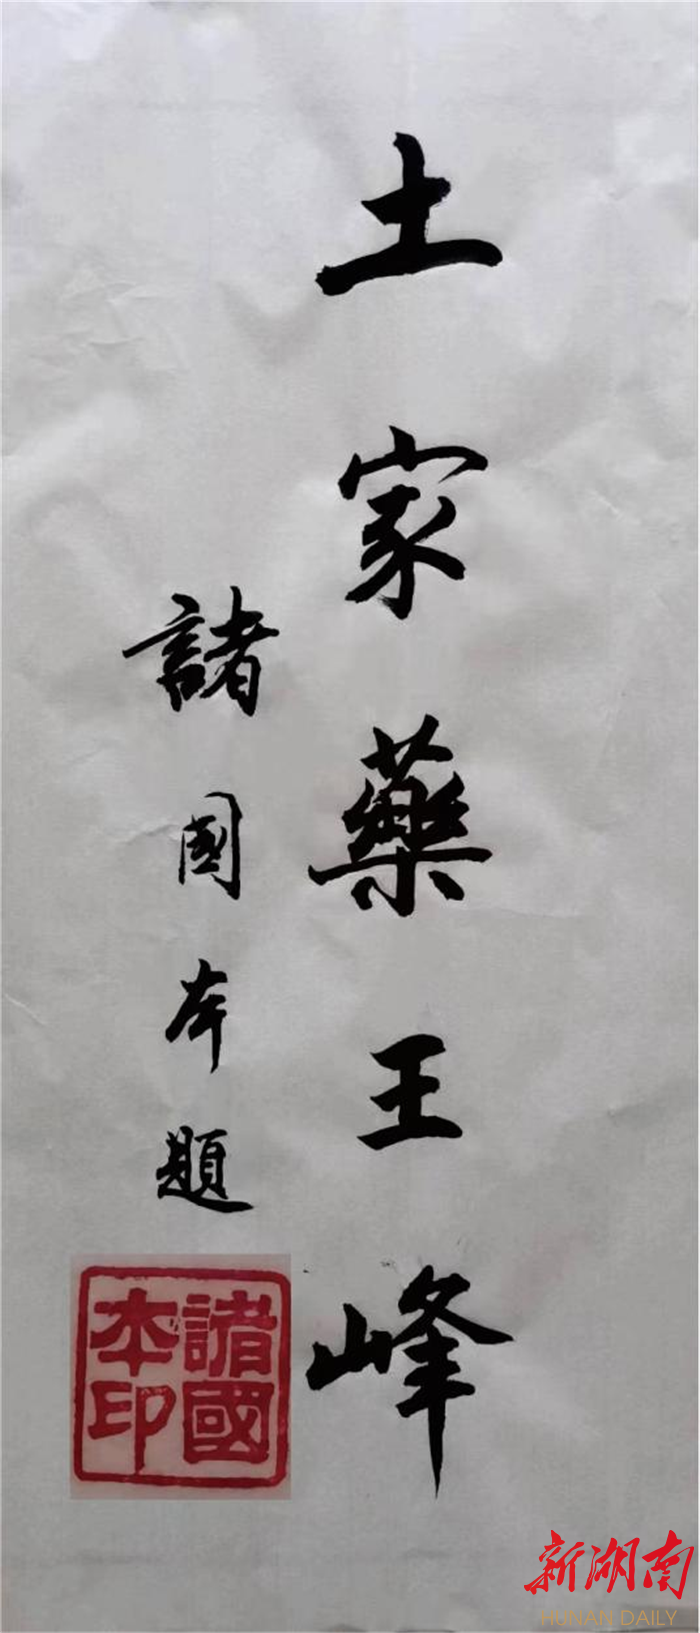 土家藥王峰
諸國本題
諸國
本印
新湖南
HUNAN DAILY